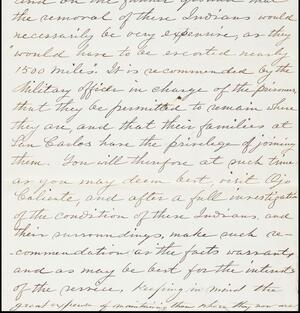 and on the further ground that
the removal of these Indians would
necessarily be very expensive, as they
"would have to be escorted nearly
1500 miles". It is recommended by the
Military officer in charge of the prisoners,
that they be permitted to remain where
they are, and that their families at
San Carlos have the privelege of joining
them. You will therefore at such time
as you may deem best, visit Ojo
Caliente, and after a full investigation
of the condition of these Indians, and
their surroundings, make such re-
commendation as the facts warrant,
and as may be best for the interests
of the service, keeping in mind the
great expense of maintaining them where they now are